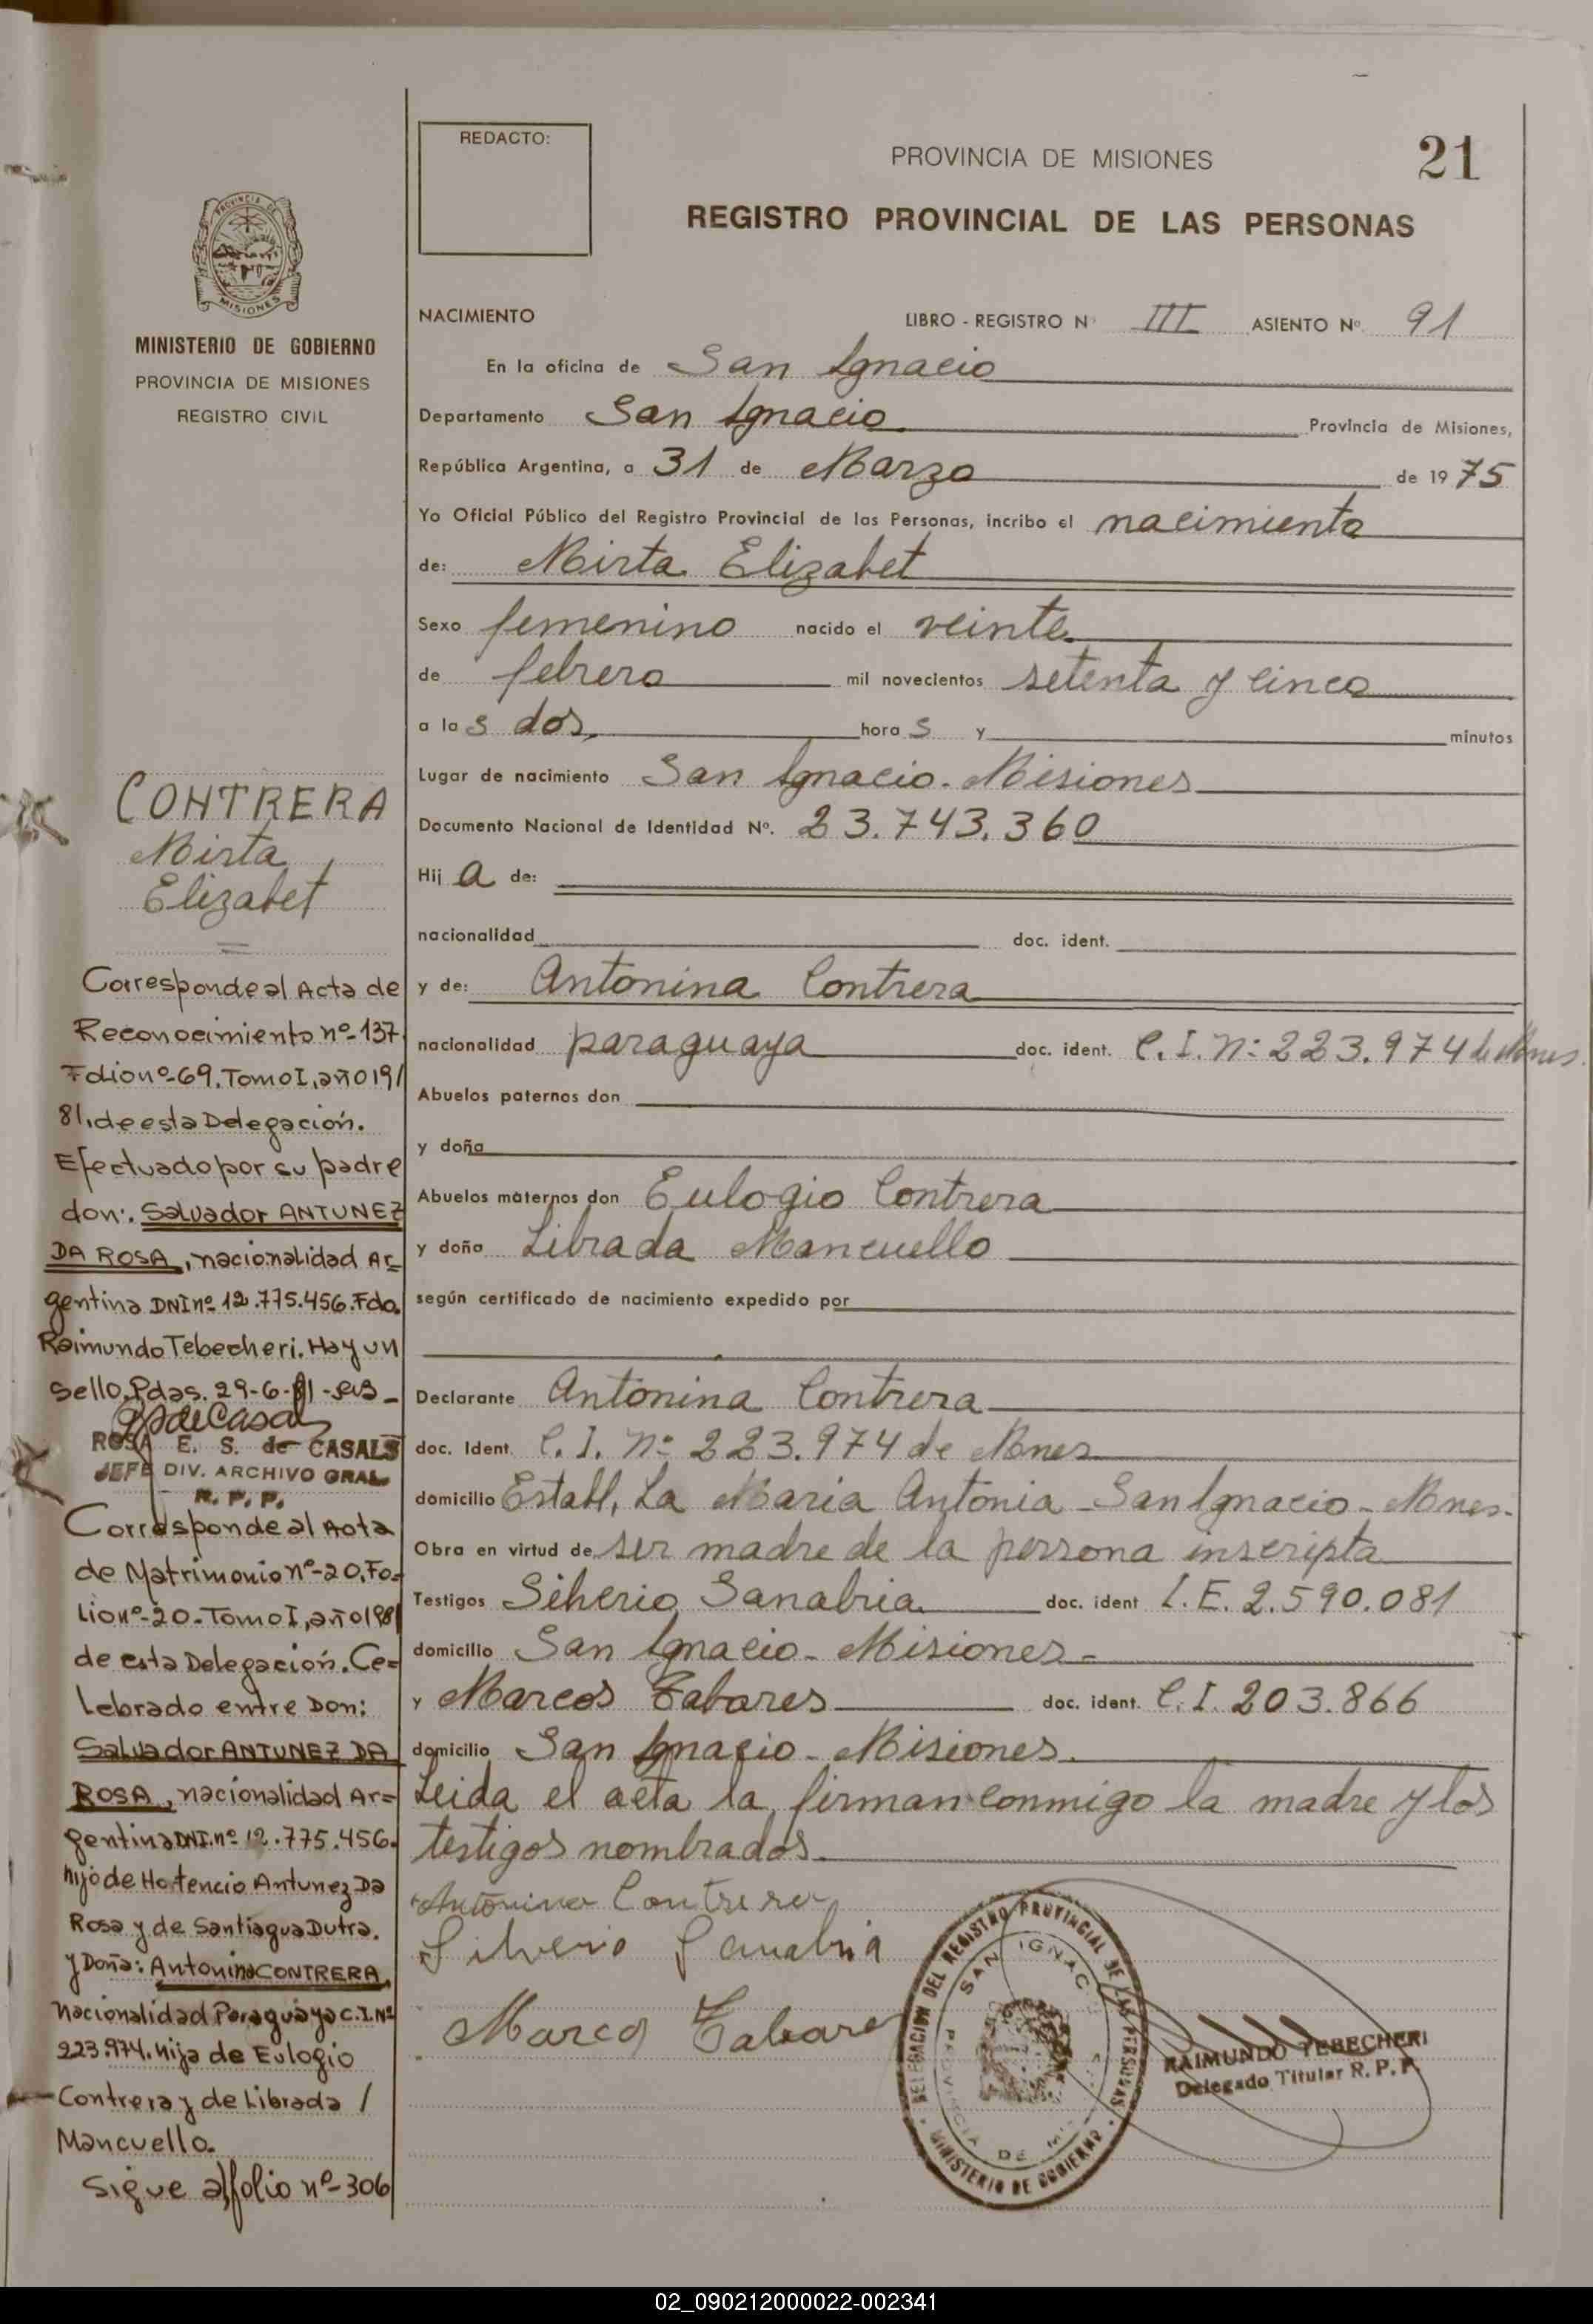 REDACTO:
PROVINCIA DE MISIONES
21
REGISTRO PROVINCIAL DE LAS PERSONAS
PROVINCIA DE
MISIONES
MINISTERIO DE GOBIERNO
PROVINCIA DE MISIONES
REGISTRO CIVIL
NACIMIENTO
LIBRO - REGISTRO Nº III ASIENTO Nº 91
En la oficina de San Ignacio
Departamento San Ignacio Provincia de Misiones,
República Argentina, a 31 de Marzo de 1975
Yo Oficial Público del Registro Provincial de las Personas, incribo el nacimiento
de: Mirta Elizabet
Sexo femenino nacido el veinte
de febrero mil novecientos setenta y cinco
a las dos horas y minutos
Lugar de nacimiento San Ignacio - Misiones
Documento Nacional de Identidad Nº. 23.743.360
Hija de:
nacionalidad doc. ident.
y de: Antonina Contrera
nacionalidad paraguaya doc. ident. C.I. Nº 223.974 de Mnes.
Abuelos paternos don
y doña
Abuelos maternos don Eulogio Contrera
y doña Librada Mancuello
según certificado de nacimiento expedido por
Declarante Antonina Contrera
doc. Ident. C.I. Nº 223.974 de Mnes
domicilio Establ. La Maria Antonia - San Ignacio - Mnes.
Obra en virtud de ser madre de la persona inscripta
Testigos Silverio Sanabria doc. ident I.E. 2.590.081
domicilio San Ignacio - Misiones -
y Marcos Tabares doc. ident. C.I. 203.866
domicilio San Ignacio - Misiones.
Leida el acta la firman conmigo la madre y los
testigos nombrados.
Antonina Contrera
Silverio Sanabria
Marcos Tabares
DELEGACION DEL REGISTRO PROVINCIAL DE LAS PERSONAS
MINISTERIO DE GOBIERNO
SAN IGNACIO
PROVINCIA DE
RAIMUNDO TEBECHERI
Delegado Titular R. P. P.
CONTRERA
Mirta
Elizabet
Corresponde al Acta de
Reconocimiento nº-137
Folio nº-69. Tomo I, año 19/
81, de esta Delegación.
Efectuado por su padre
don: Salvador ANTUNEZ
DA ROSA, nacionalidad Ar=
gentina DNI nº 12.775.456. Fdo.
Raimundo Tebecheri. Hay un
Sello. Pdas. 29-6-81-
ROSA E. S. de CASALS
JEFE DIV. ARCHIVO GRAL
R. P. P.
Corresponde al Acta
de Matrimonio nº-20, Fo=
lio nº-20-Tomo I, año 1981
de esta Delegación. Ce=
lebrado entre Don:
Salvador ANTUNEZ DA
ROSA, nacionalidad Ar=
gentina DNI. nº 12.775.456.
hijo de Hortencio Antunez Da
Rosa y de Santiagua Dutra.
y Doña: Antonina CONTRERA,
nacionalidad Paraguaya C.I. Nº
223.974. hija de Eulogio
Contrera y de Librada /
Mancuello.
Sigue al folio nº-306
02_090212000022-002341